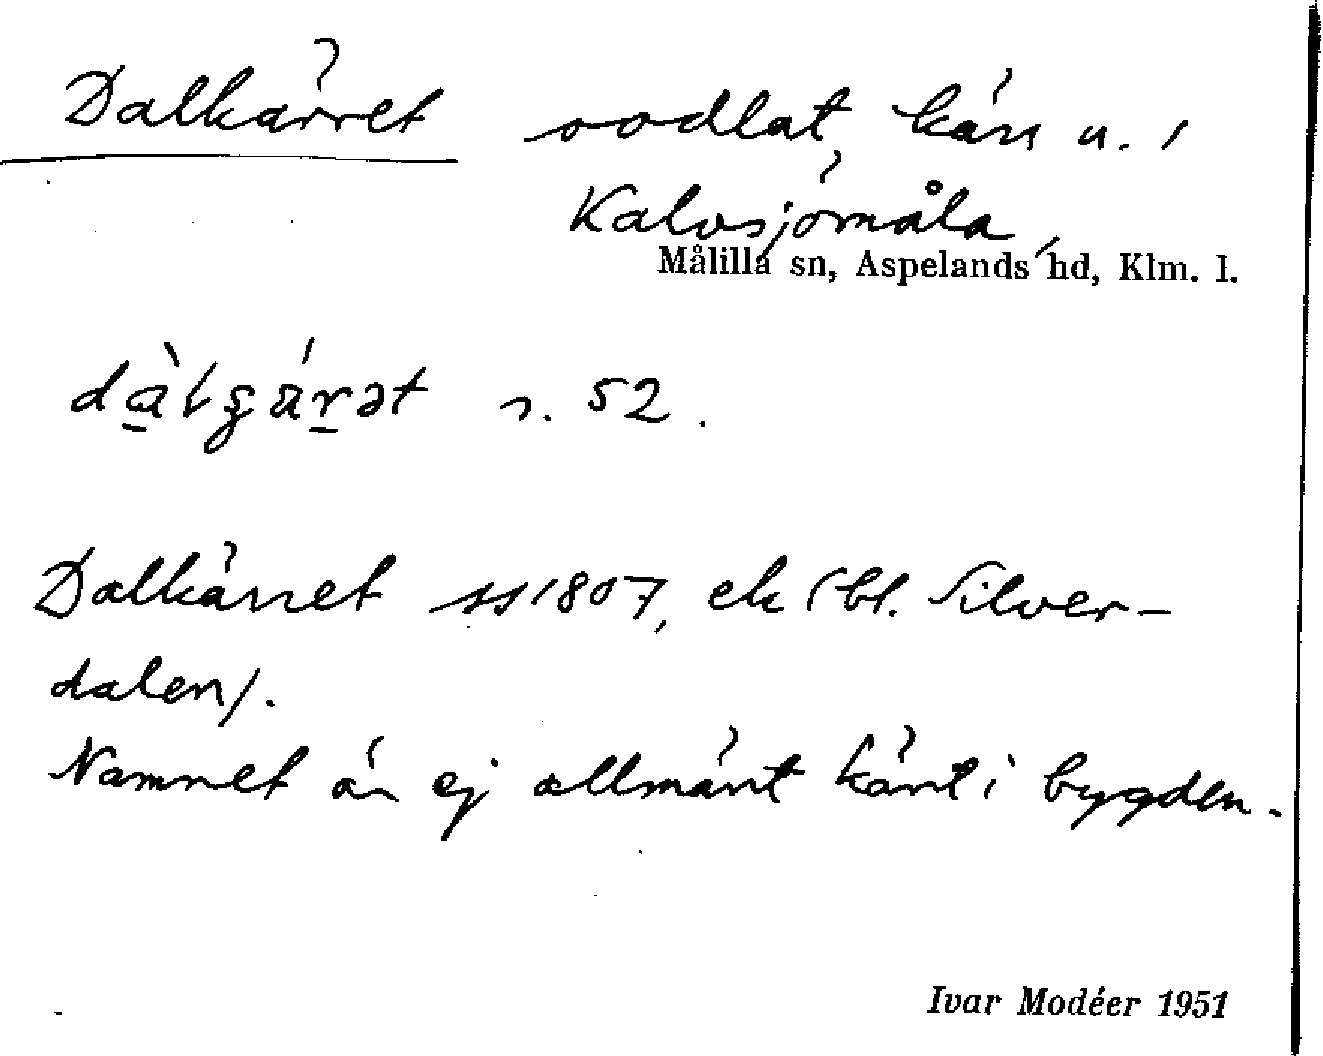 Dalkärret oodlat kärr u. /
Kalvsjömåla,
Målilla sn, Aspelands hd, Klm. l.
dàlgä́rət s. 52.
Dalkärret ss 1807, ek (bl. Silver-
dalen).
Namnet är ej allmänt känt i bygden.
Ivar Modéer 1951